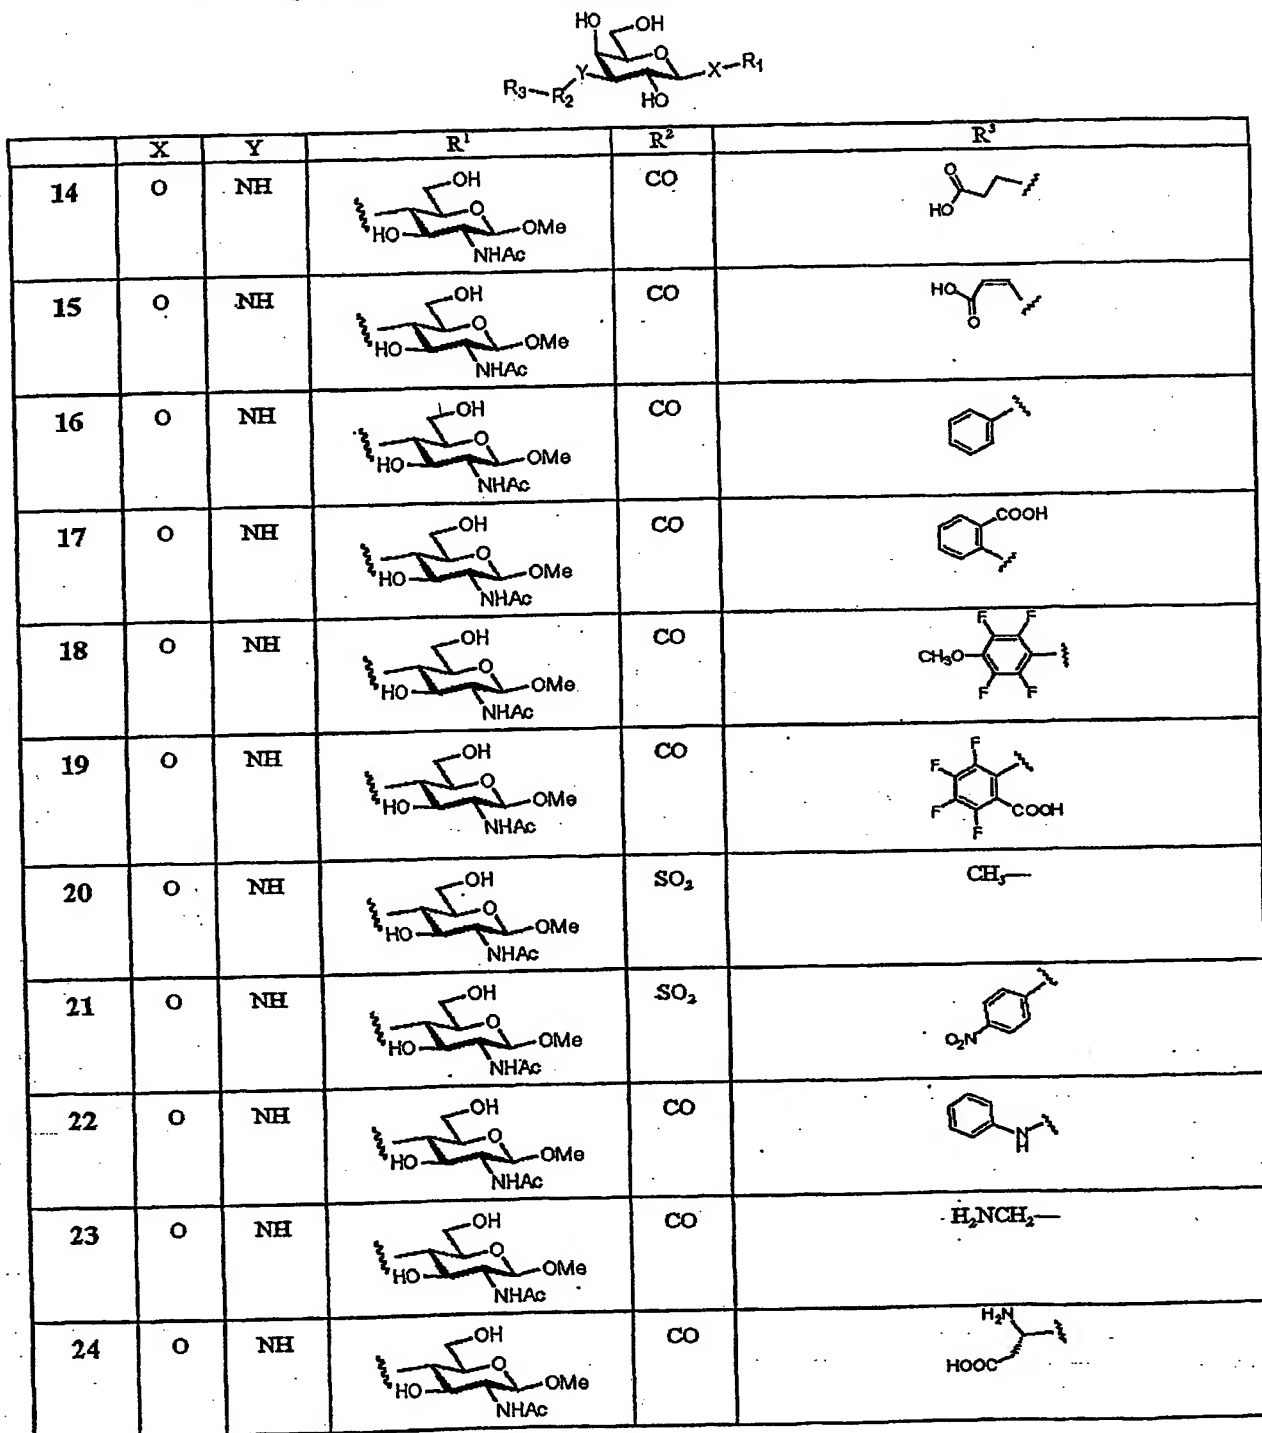 HO OH
O
Y X–R₁
R₃–R₂ HO
X Y R¹ R² R³
14 O NH OH O HO OMe NHAc CO O HO
15 O NH OH O HO OMe NHAc CO HO O
16 O NH OH O HO OMe NHAc CO
17 O NH OH O HO OMe NHAc CO COOH
18 O NH OH O HO OMe NHAc CO F F CH₃O F F
19 O NH OH O HO OMe NHAc CO F F F F COOH
20 O NH OH O HO OMe NHAc SO₂ CH₃—
21 O NH OH O HO OMe NHAc SO₂ O₂N
22 O NH OH O HO OMe NHAc CO N H
23 O NH OH O HO OMe NHAc CO H₂NCH₂—
24 O NH OH O HO OMe NHAc CO H₂N HOOC